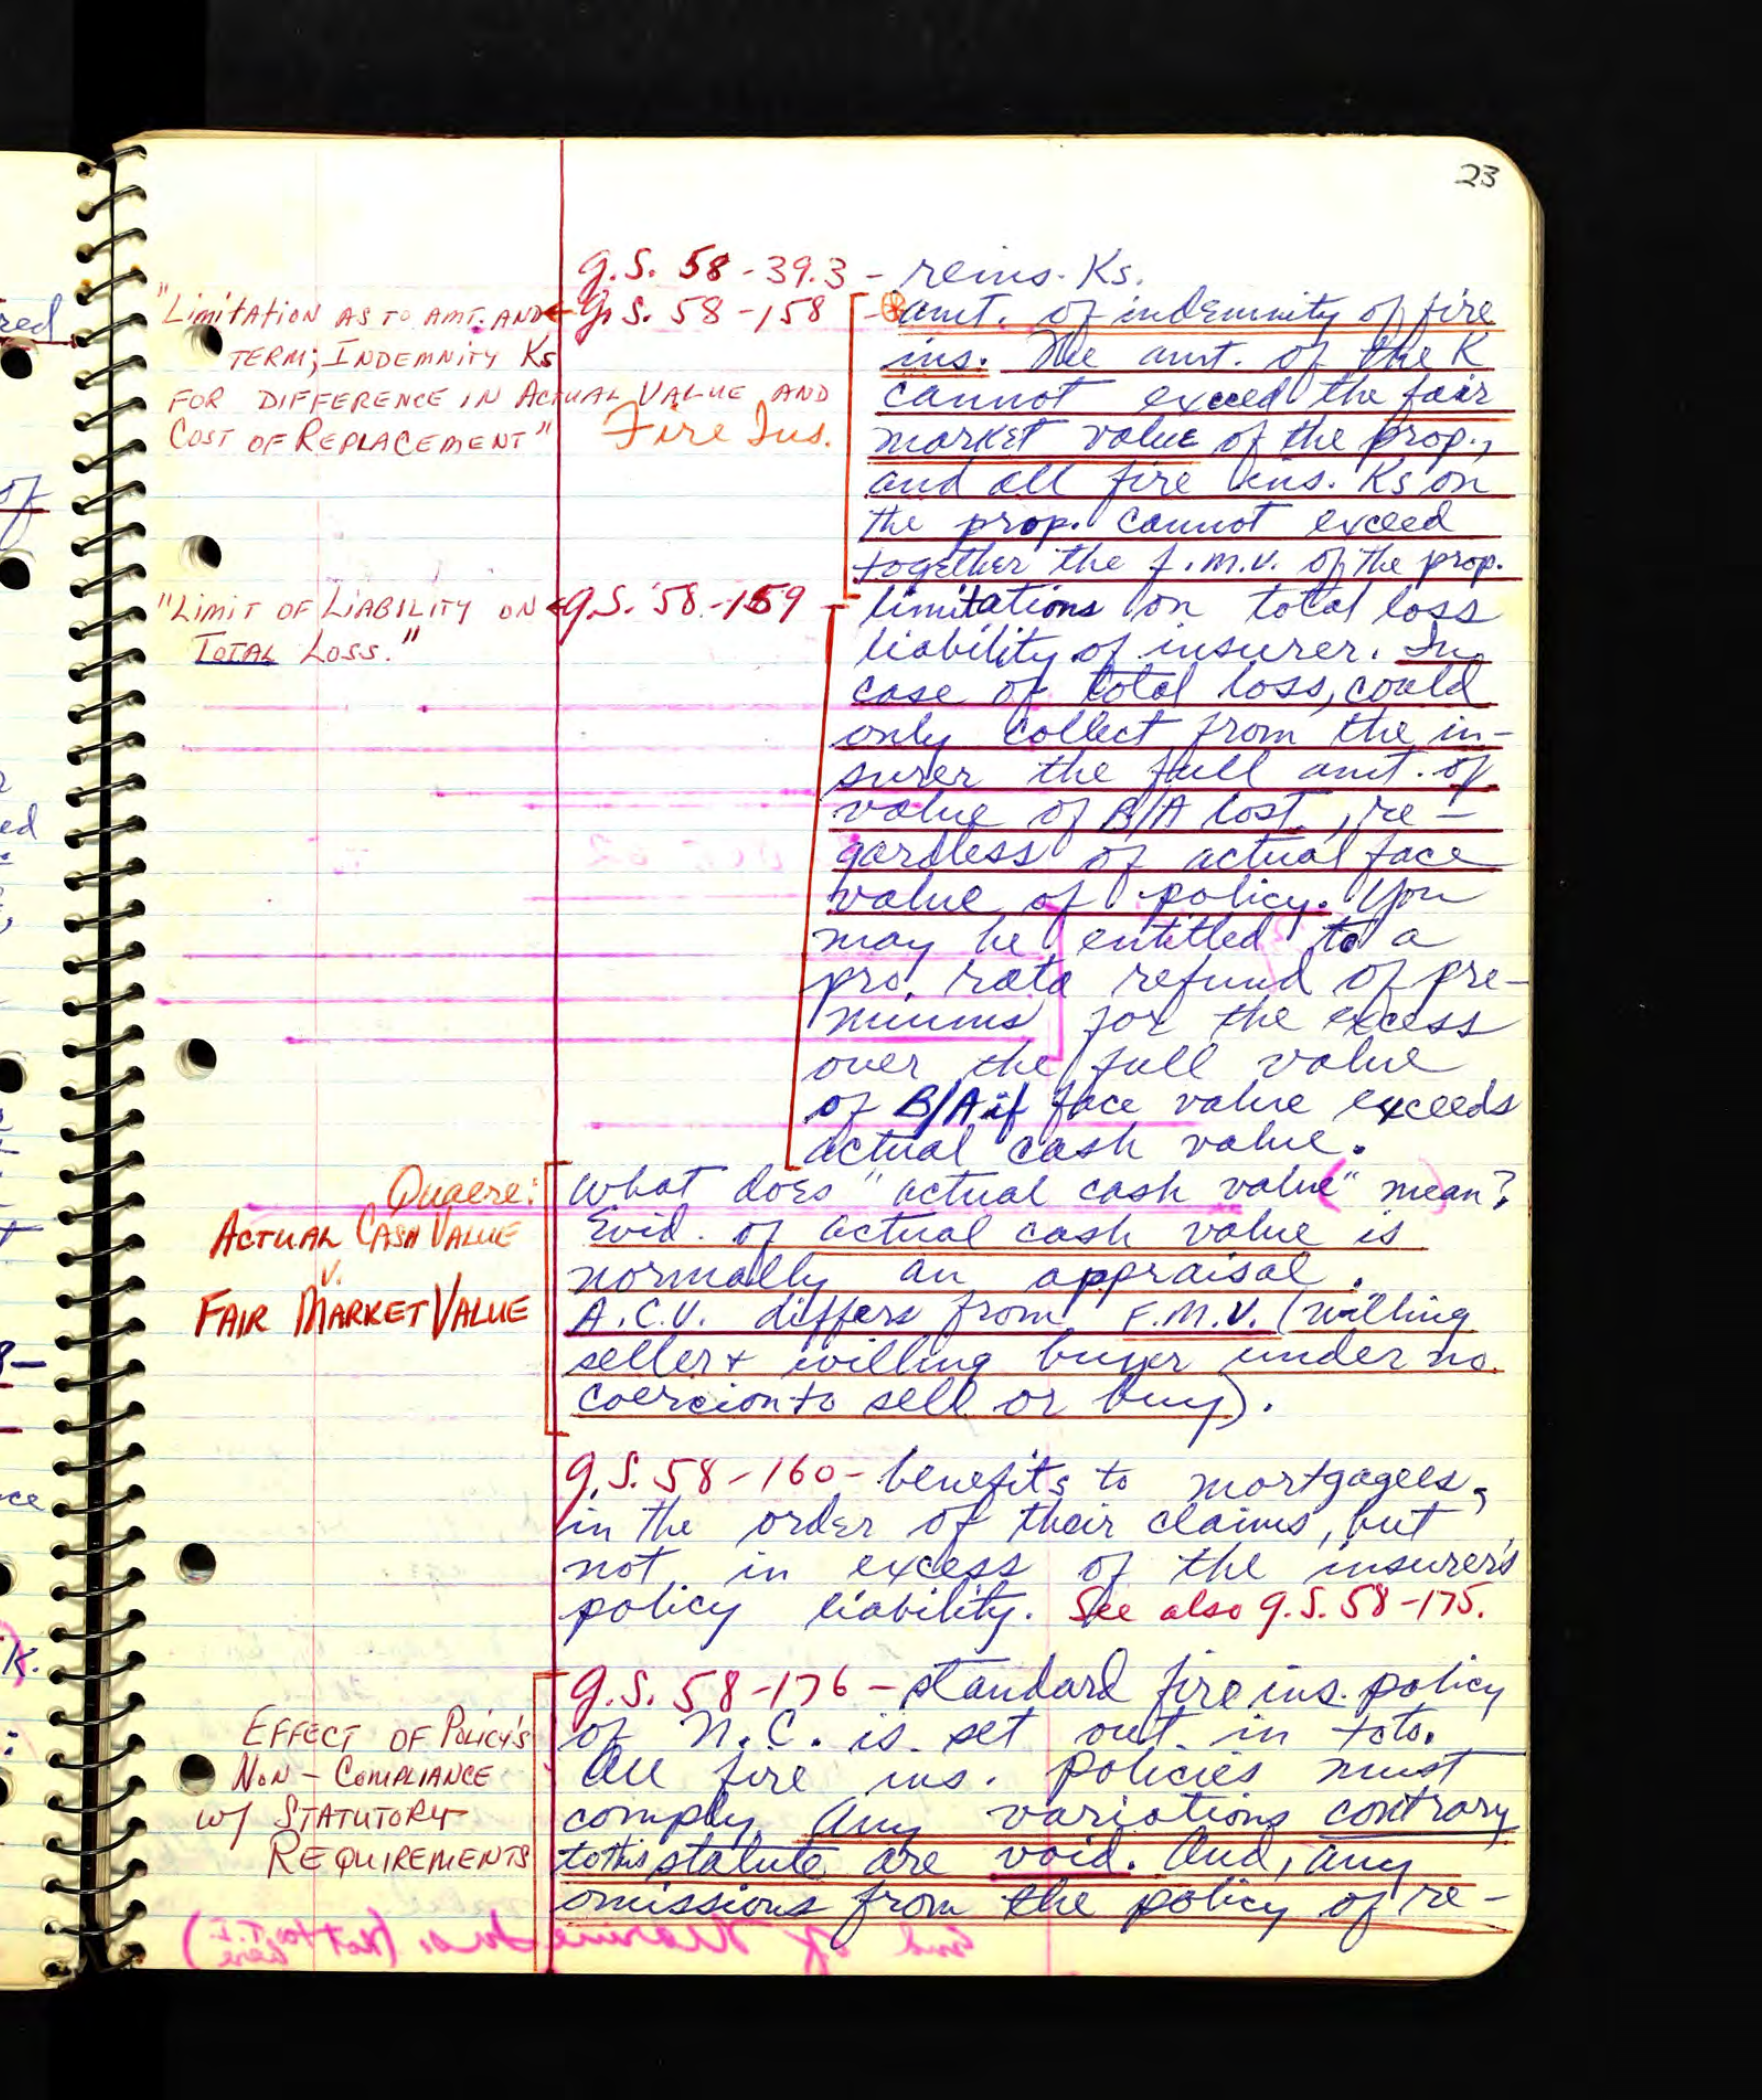 23
g.S. 58-39.3 - reins. Ks.
"Limitation as to amt. and
term; Indemnity Ks
for difference in Actual Value and
Cost of Replacement"
Fire Ins.
g.S. 58-158 - amt. of indemnity of fire
ins. The amt. of the K
cannot exceed the fair
market value of the prop.,
and all fire ins. Ks on
the prop. cannot exceed
together the f.m.v. of the prop.
"Limit of Liability on
Total Loss."
g.S. 58-159 - limitations on total loss
liability of insurer. In
case of total loss, could
only collect from the in-
surer the full amt. of
value of B/A lost, re-
gardless of actual face
value of policy. You
may be entitled to a
pro rata refund of pre-
miums for the excess
over the full value
of B/A if face value exceeds
actual cash value.
Quaere:
Actual Cash Value
v.
Fair Market Value
What does "actual cash value" mean?
Evid. of actual cash value is
normally an appraisal.
A.C.V. differs from F.M.V. (willing
seller + willing buyer under no
coercion to sell or buy).
g.S. 58-160 - benefits to mortgagees,
in the order of their claims, but
not in excess of the insurer's
policy liability. See also g.S. 58-175.
Effect of Policy's
Non-Compliance
w/ Statutory
Requirements
g.S. 58-176 - standard fire ins. policy
of N.C. is set out in toto.
All fire ins. policies must
comply. Any variations contrary
to this statute are void. And, any
omissions from the policy of re-
red
of
ed
8-
ce
K.